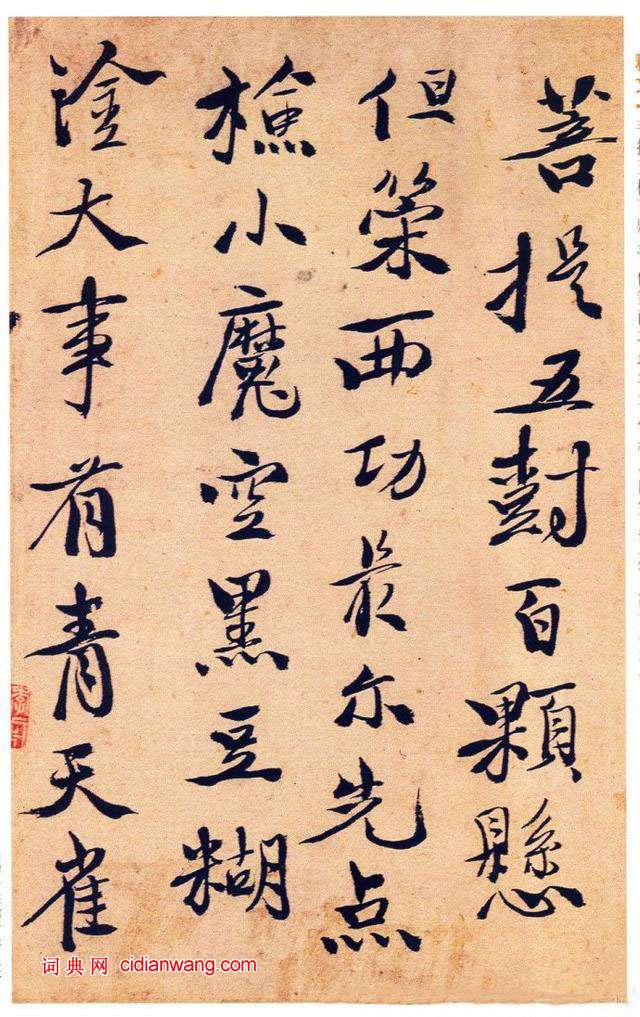 菩提五尌百顆懸
但策西功最尔先点
檢小魔空黑豆糊
大事有青天雀
词典网 cidianwang.com